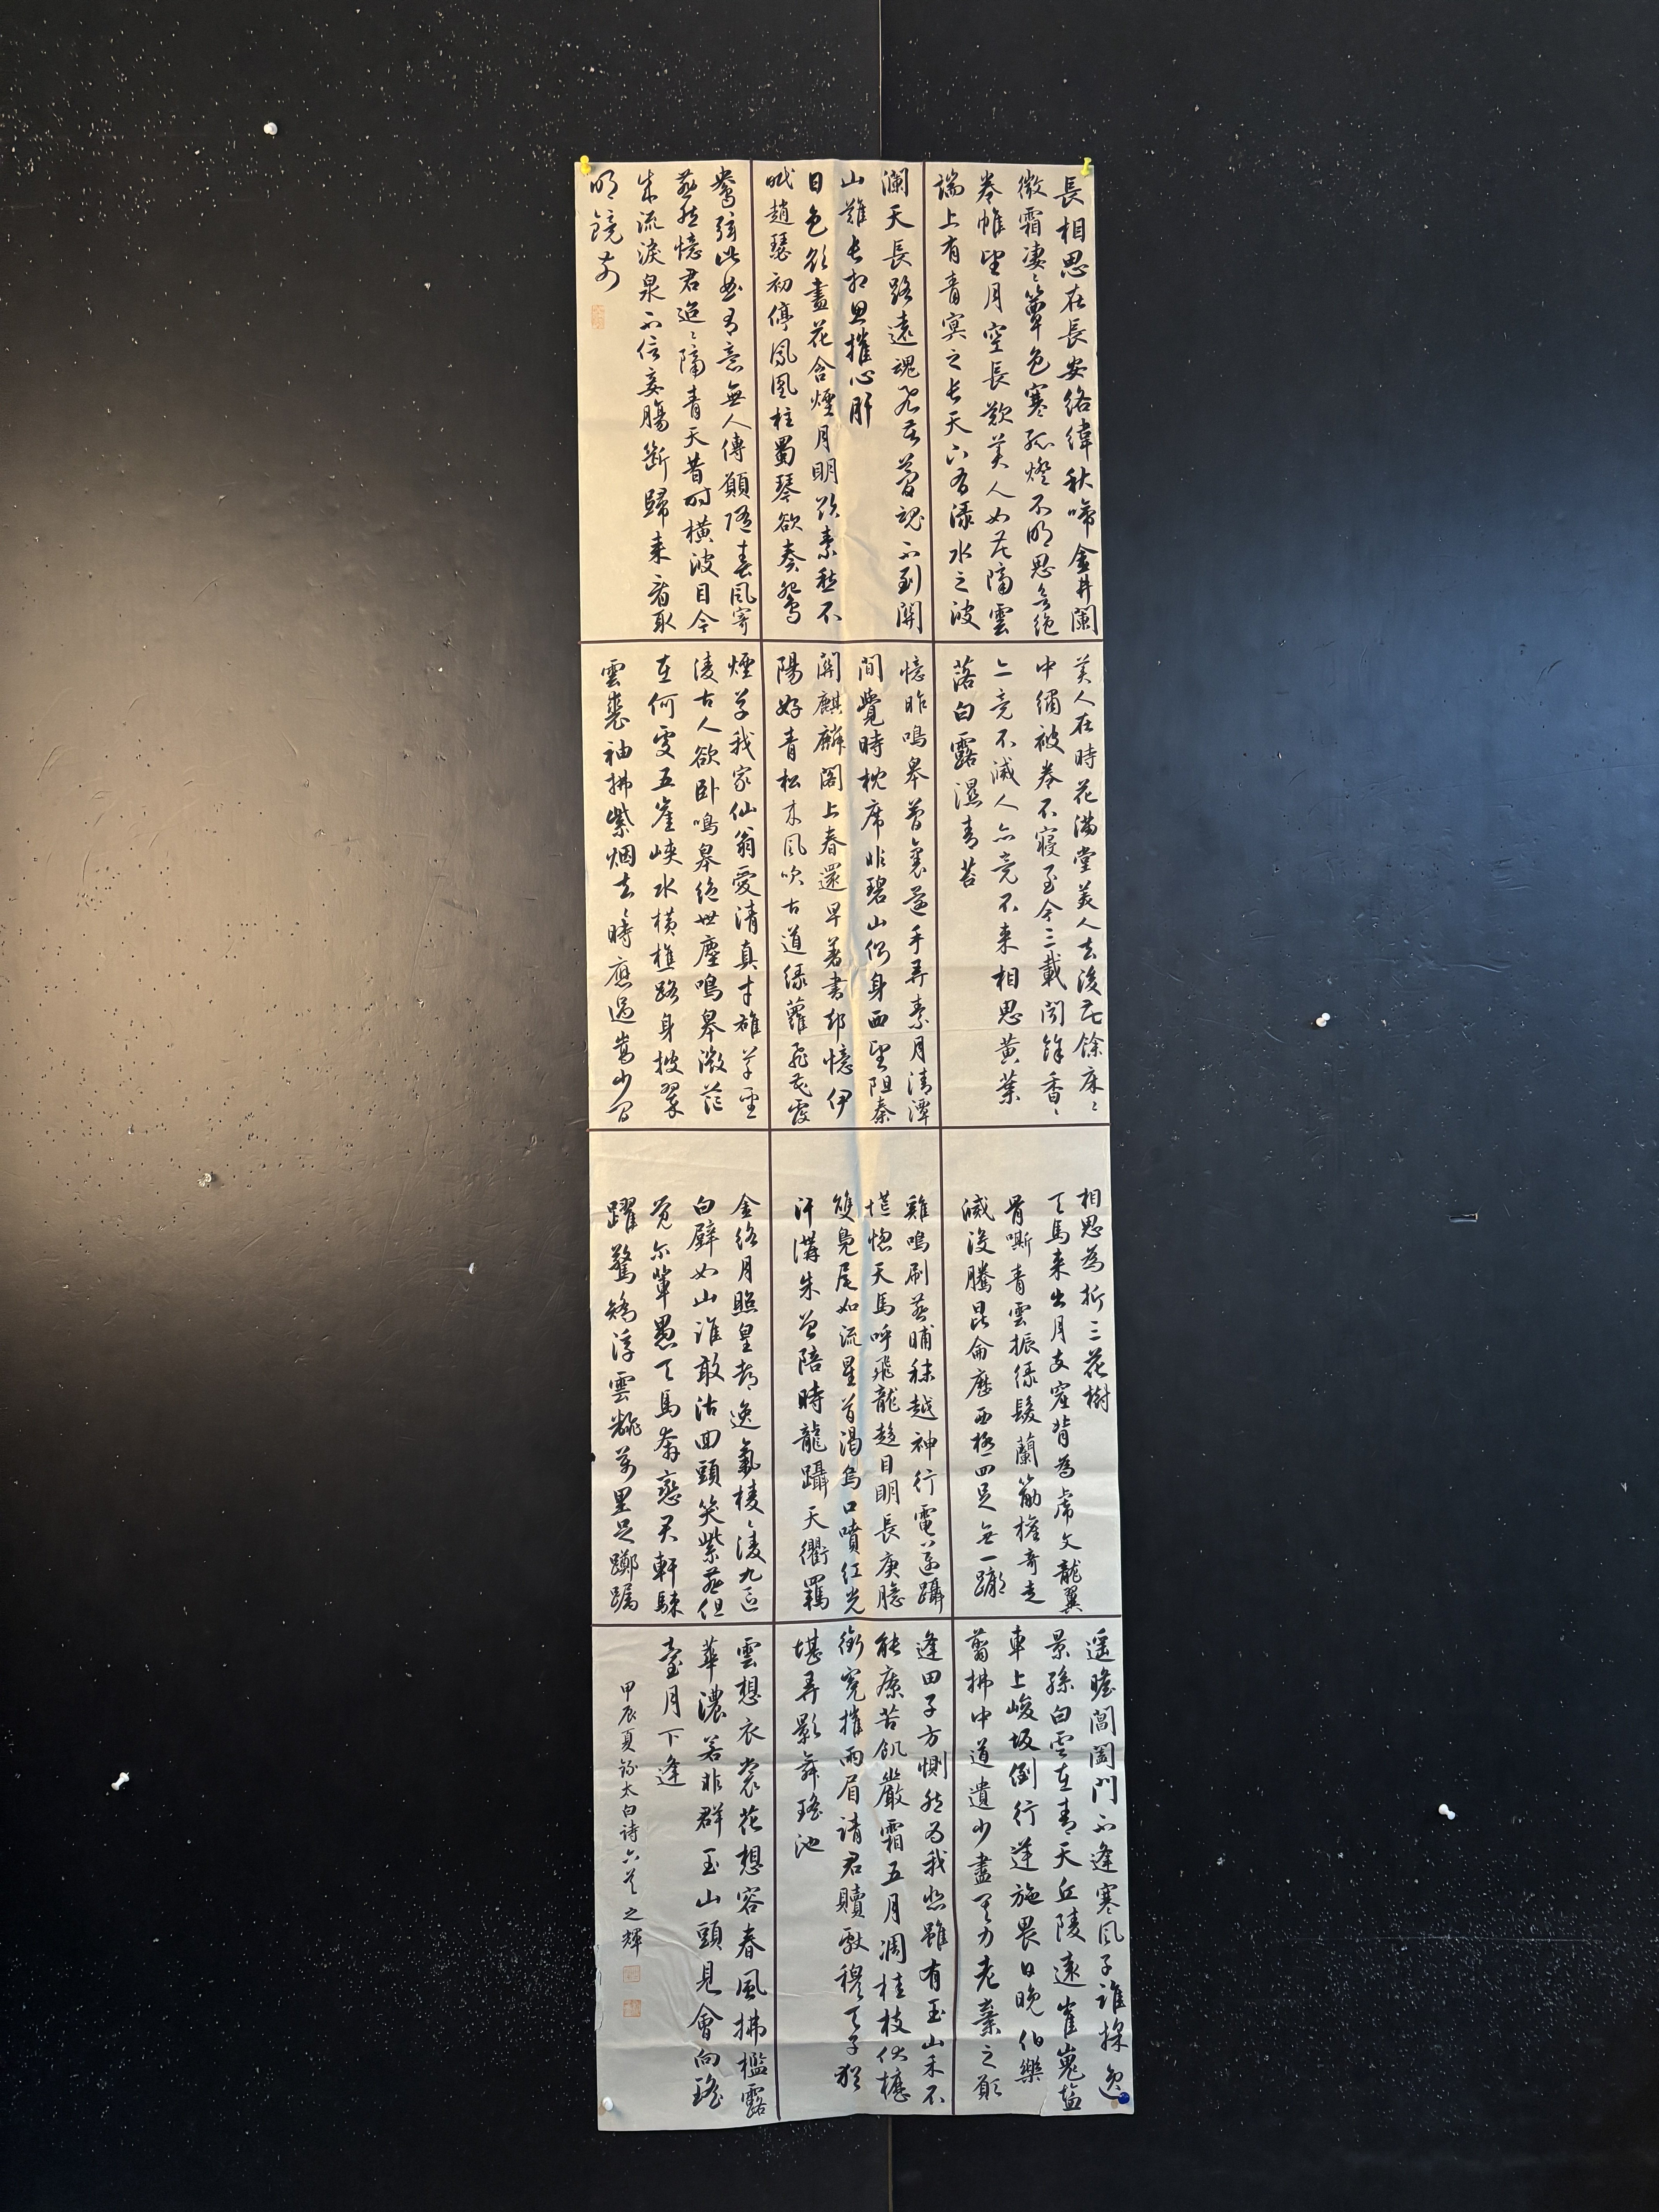 長相思在長安絡緯秋啼金井闌
微霜凄〻簟色寒孤燈不明思欲絕
卷帷望月空長歎美人如花隔雲
端上有青冥之長天下有淥水之波
瀾天長路遠魂飛苦夢魂不到關
山難長相思摧心肝
日色欲盡花含煙月明欲素愁不
眠趙瑟初停鳳凰柱蜀琴欲奏鴛
鴦弦此曲有意無人傳願隨春風寄
燕然憶君迢〻隔青天昔時橫波目今
成流淚泉不信妾腸斷歸來看取
明鏡前
美人在時花滿堂美人去後花餘床〻
中繡被卷不寢至今三載聞餘香〻
亦竟不滅人亦竟不來相思黃葉
落白露濕青苔
憶昨鳴皋夢裏還手弄素月清潭
間覺時枕席非碧山側身西望阻秦
關麒麟閣上春還早著書却憶伊
陽好青松來風吹古道綠蘿飛花覆
煙草我家仙翁愛清真才雄草聖
凌古人欲卧鳴皋絕世塵鳴皋微茫
在何處五崖峽水橫樵路身披翠
雲裘袖拂紫烟去〻時應過嵩少間
相思為折三花樹
天馬來出月支窟背為虎文龍翼
骨嘶青雲振綠髮蘭筋權奇走
滅沒騰昆侖歷西極四足無一蹶
雞鳴刷燕晡秣越神行電邁躡
慌惚天馬呼飛龍趨目明長庚臆
雙鳧尾如流星首渴烏口噴紅光
汗溝朱曾陪時龍躡天衢羈
金絡月照皇都逸氣稜〻凌九區
白璧如山誰敢沽回頭笑紫燕但
覺爾輩愚天馬奔戀君軒駷
躍驚矯浮雲飜萬里足躑躅
遥瞻閶闔門不逢寒風子誰採逸
景孫白雲在青天丘陵遠崔嵬鹽
車上峻坂倒行逆施畏日晚伯樂
翦拂中道遺少盡其力老棄之願
逢田子方惻然為我悲雖有玉山禾不
能療苦飢嚴霜五月凋桂枝伏櫪
銜冤摧兩眉請君贖獻穆天子猶
堪弄影舞瑤池
雲想衣裳花想容春風拂檻露
華濃若非群玉山頭見會向瑤
臺月下逢
甲辰夏錄太白詩六首之輝